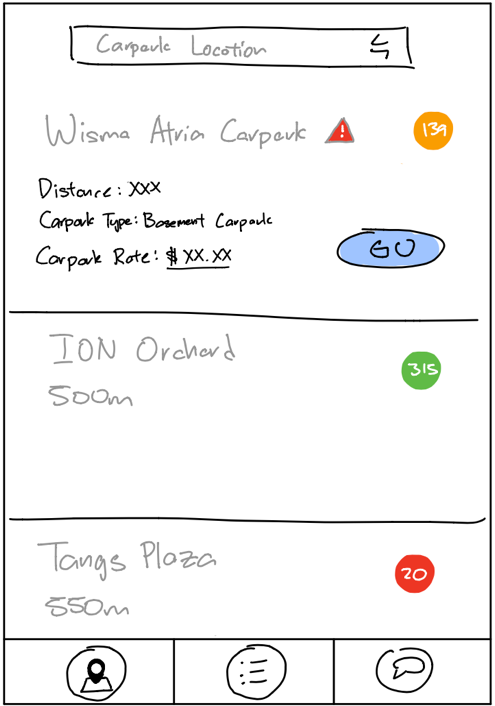 Carpark Location
Wisma Atria Carpark
139
Distance: XXX
Carpark Type: Basement Carpark
Carpark Rate: $ XX.XX
GO
ION Orchard
315
500m
Tangs Plaza
20
550m